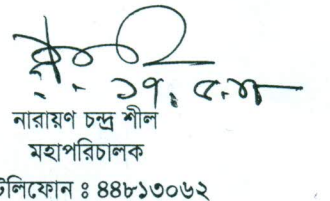 ১৭.৫.২৮
নারায়ণ চন্দ্র শীল
মহাপরিচালক
টেলিফোন ঃ ৪৪৮১৩০৬২